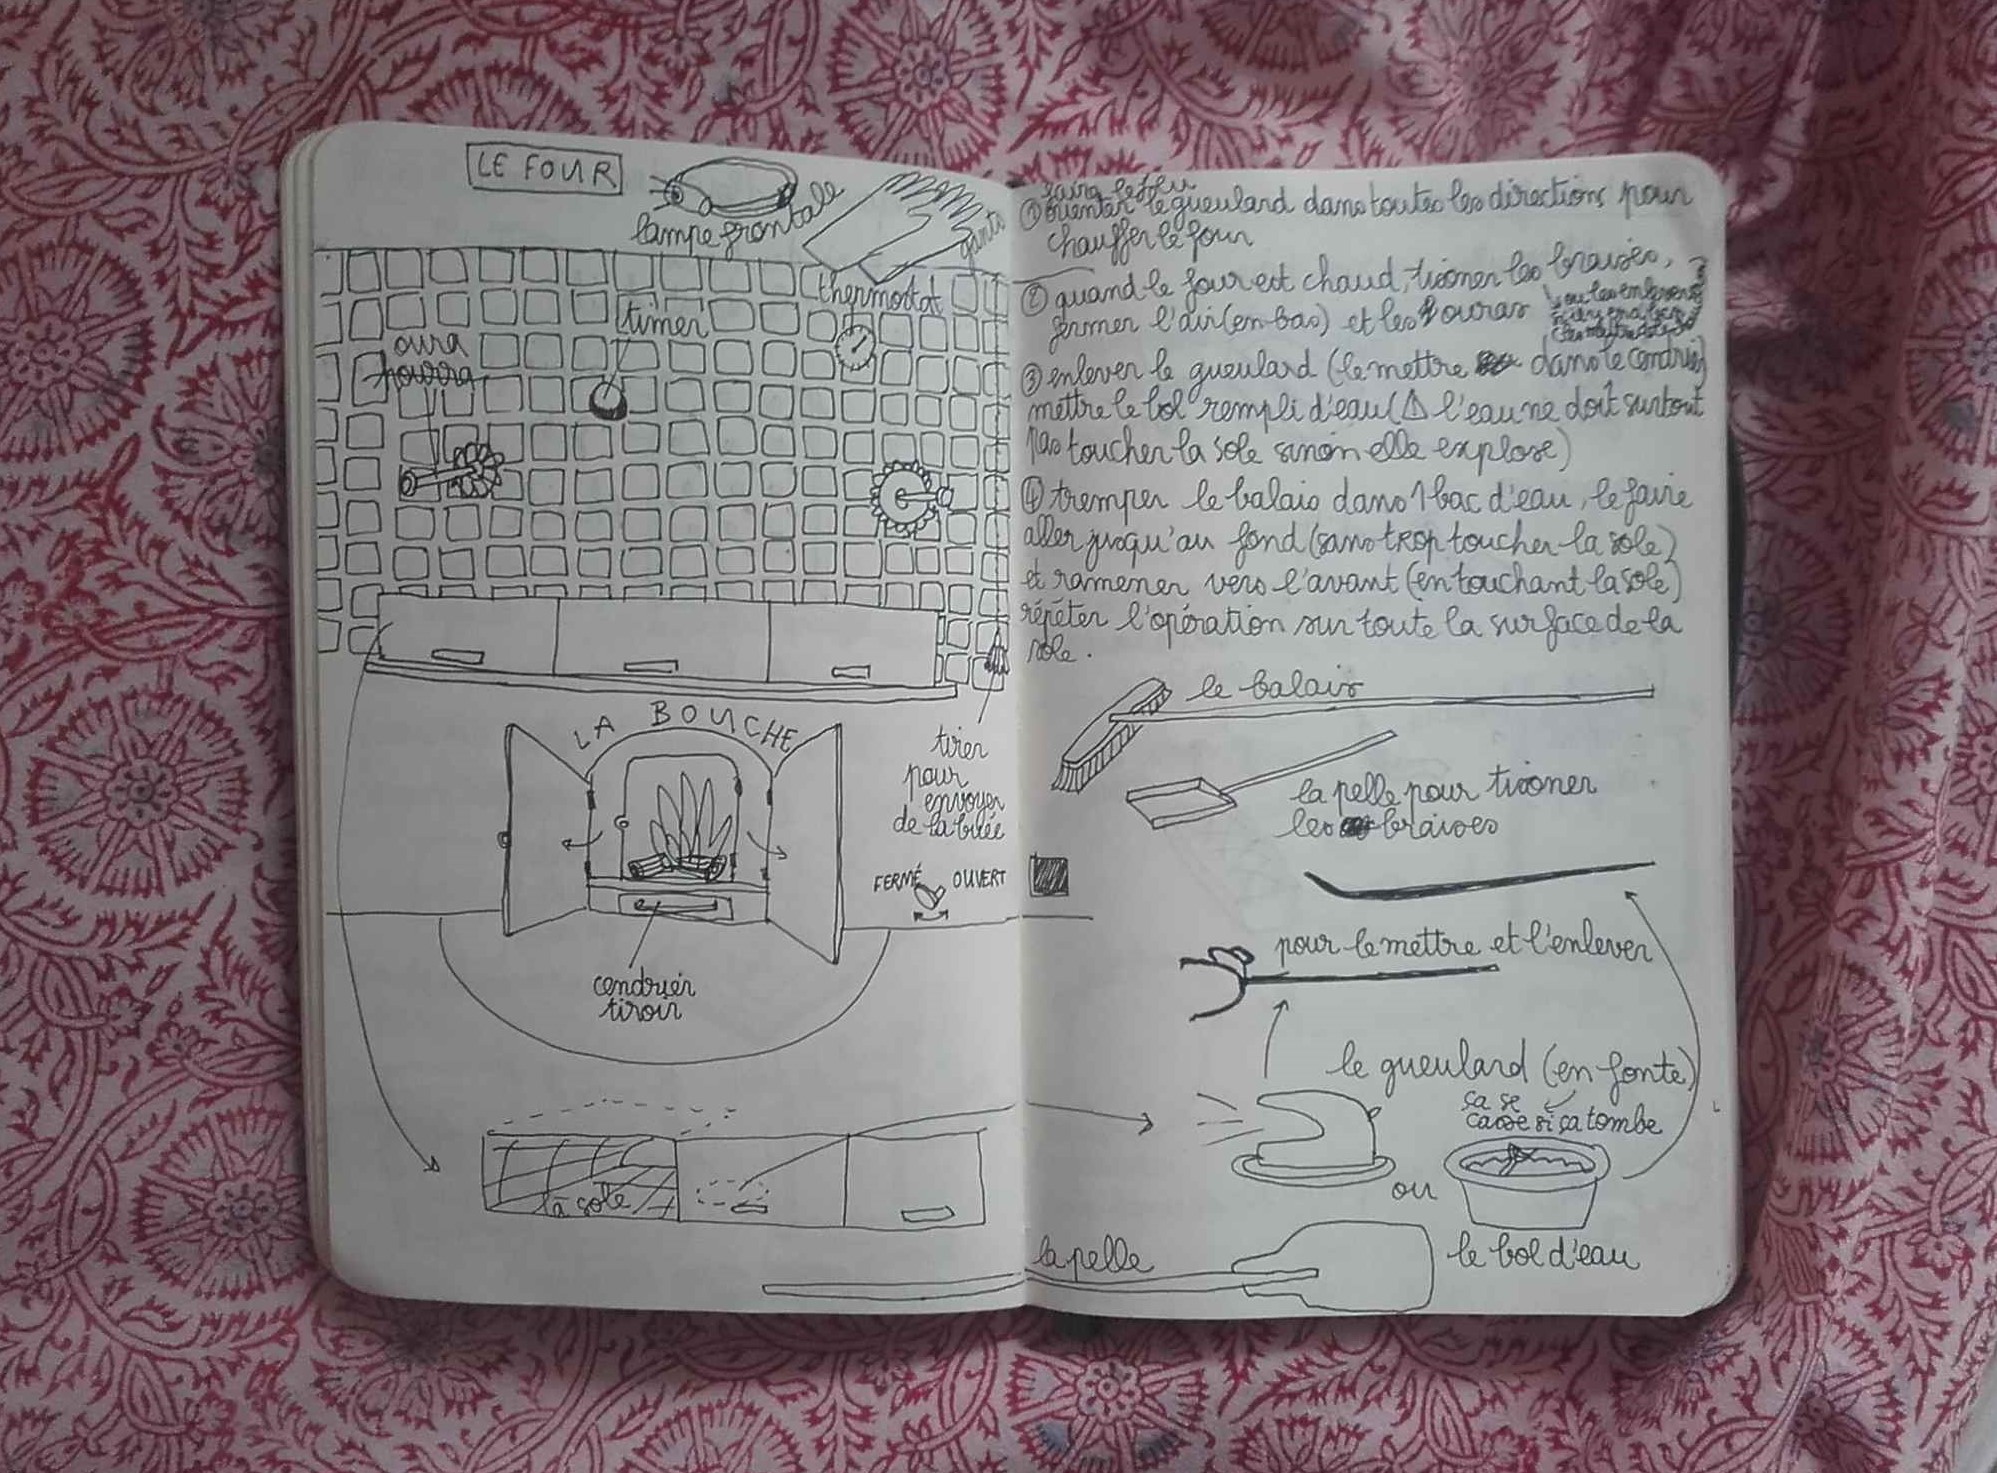 LE FOUR
lampe frontale
gants
thermostat
timer
oura
houra
LA BOUCHE
tirer
pour
envoyer
de la buée
FERMÉ OUVERT
cendrier
tiroir
la sole
faire le feu
① orienter le gueulard dans toutes les directions pour
chauffer le four
② quand le four est chaud, tisoner les braises,
fermer l'air (en bas) et les ouras
ou les enlever
③ enlever le gueulard (le mettre dans le cendrier)
mettre le bol rempli d'eau (⚠ l'eau ne doit surtout
pas toucher la sole sinon elle explose)
④ tremper le balais dans 1 bac d'eau, le faire
aller jusqu'au fond (sans trop toucher la sole)
et ramener vers l'avant (en touchant la sole)
répéter l'opération sur toute la surface de la
sole.
le balais
la pelle pour tisoner
les braises
pour le mettre et l'enlever
le gueulard (en fonte)
ça se
casse si ça tombe
ou
le bol d'eau
la pelle